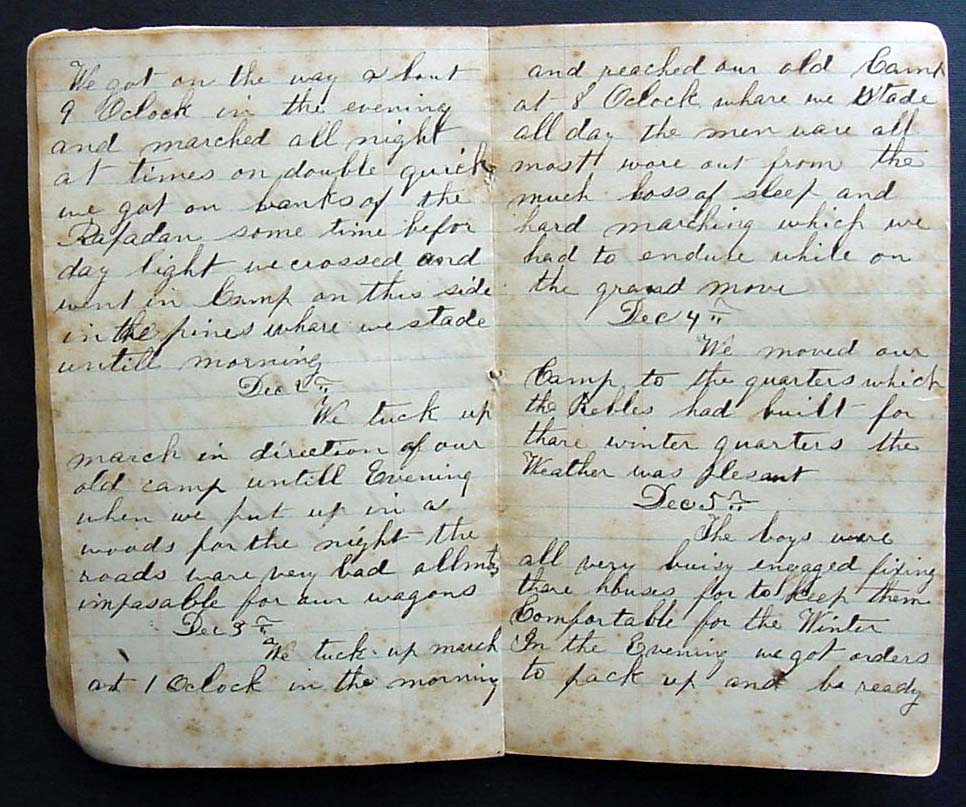 We got on the way about
9 Oclock in the evening
and marched all night
at times on double quick
we got on banks of the
Rapadan some time befor
day light we crossed and
went in Camp on this side
in the pines whare we stade
untill morning
Dec 2
We tuck up
march in direction of our
old camp untill Evening
when we put up in a
woods for the night the
roads ware very bad allmost
impasable for our wagons
Dec 3
We tuck up march
at 1 Oclock in the morning
and reached our old Camp
at 8 Oclock whare we stade
all day the men ware all
mostt wore out from the
much loss of sleep and
hard marching which we
had to endure while on
the grand move
Dec 4th
We moved our
Camp to the quarters which
the Rebles had built for
thare winter quarters the
Weather was plesant
Dec 5th
The boys ware
all very buisy engaged fixing
thare houses for to keep them
Comfortable for the Winter
In the Evening we got orders
to pack up and be ready